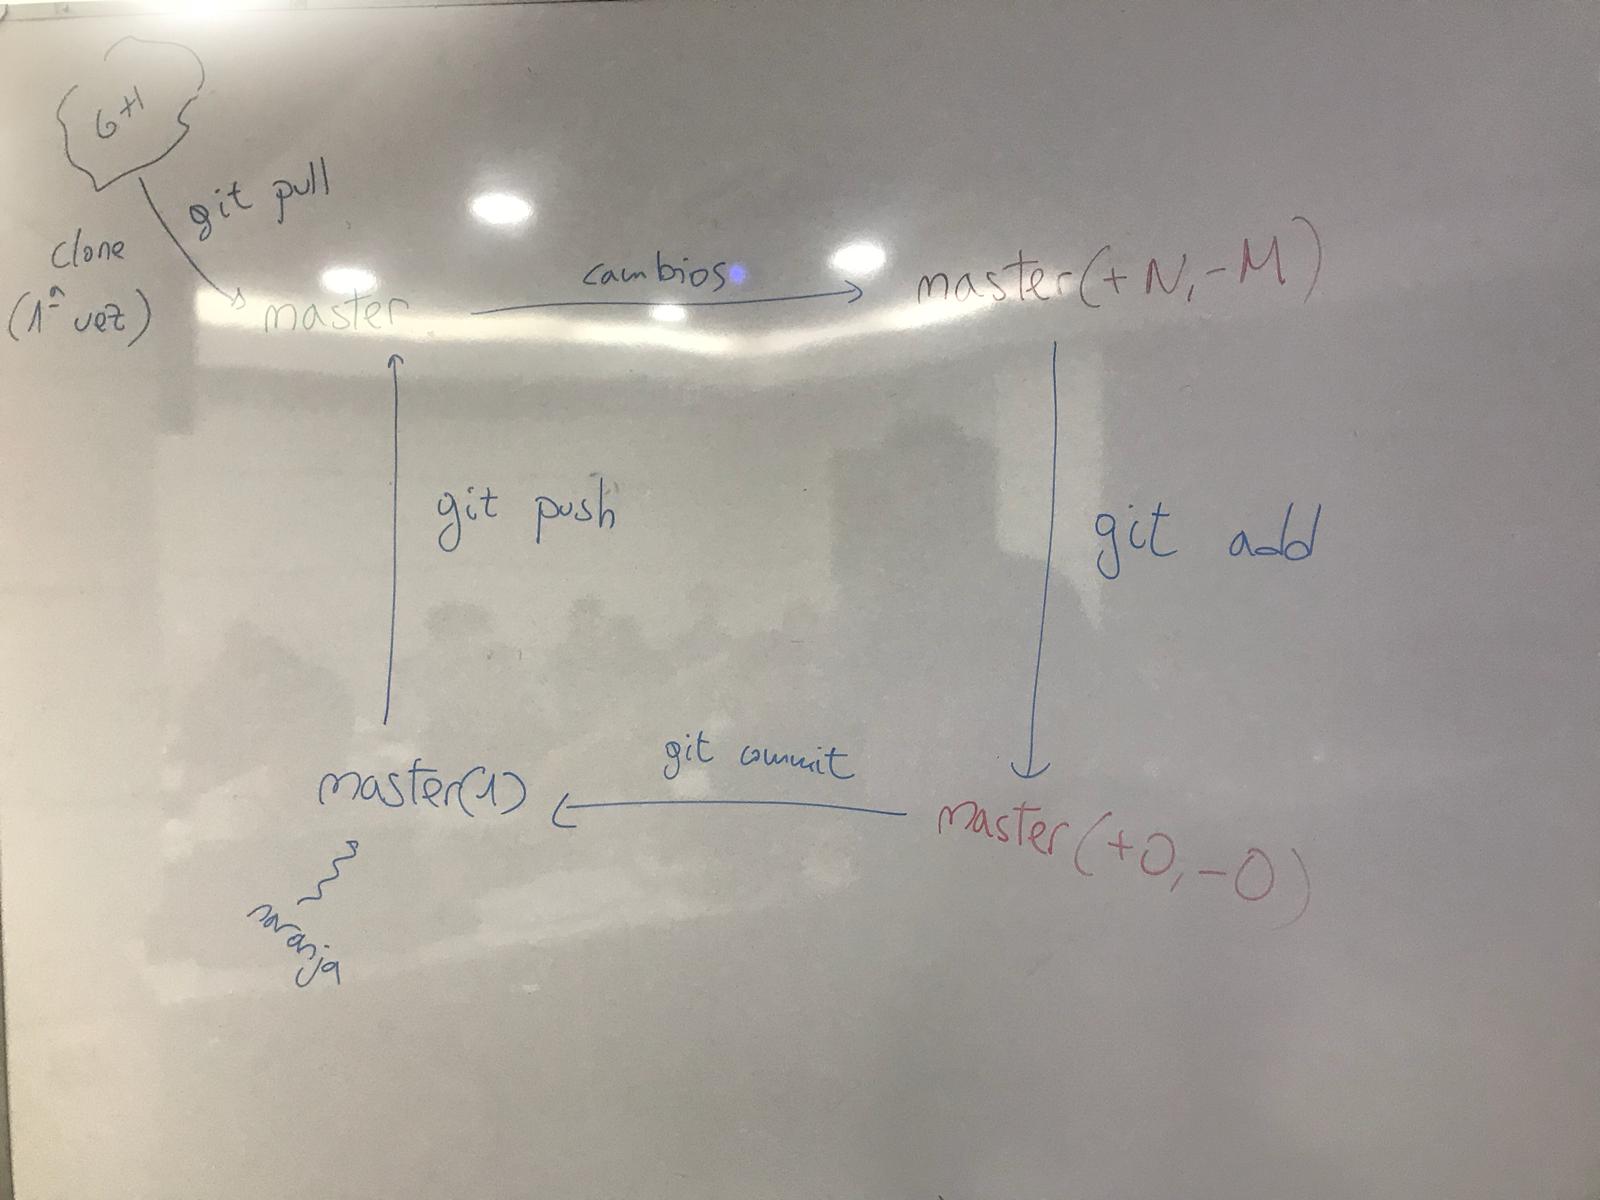 git pull
clone
(1ª vez)
master
cambios
master(+N,-M)
git push
git add
git commit
master(1)
master(+0,-0)
naranja